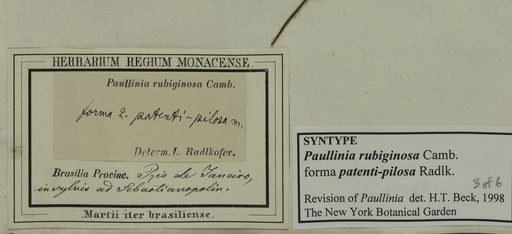 HERBARIUM REGIUM MONACENSE.
Paullinia rubiginosa Camb.
forma 2. patenti-pilosa m.
Determ. L. Radlkofer.
Brasilia Provinc. Rio de Janeiro,
in sylvis ad Sebastianopolin.
Martii iter brasiliense.
SYNTYPE
Paullinia rubiginosa Camb.
forma patenti-pilosa Radlk.
3 of 6
Revision of Paullinia det. H.T. Beck, 1998
The New York Botanical Garden